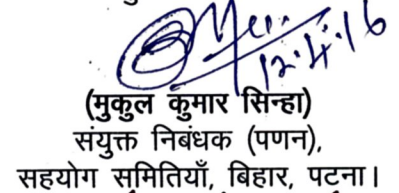 12.4.16
(मुकुल कुमार सिन्हा)
संयुक्त निबंधक (पणन),
सहयोग समितियाँ, बिहार, पटना।